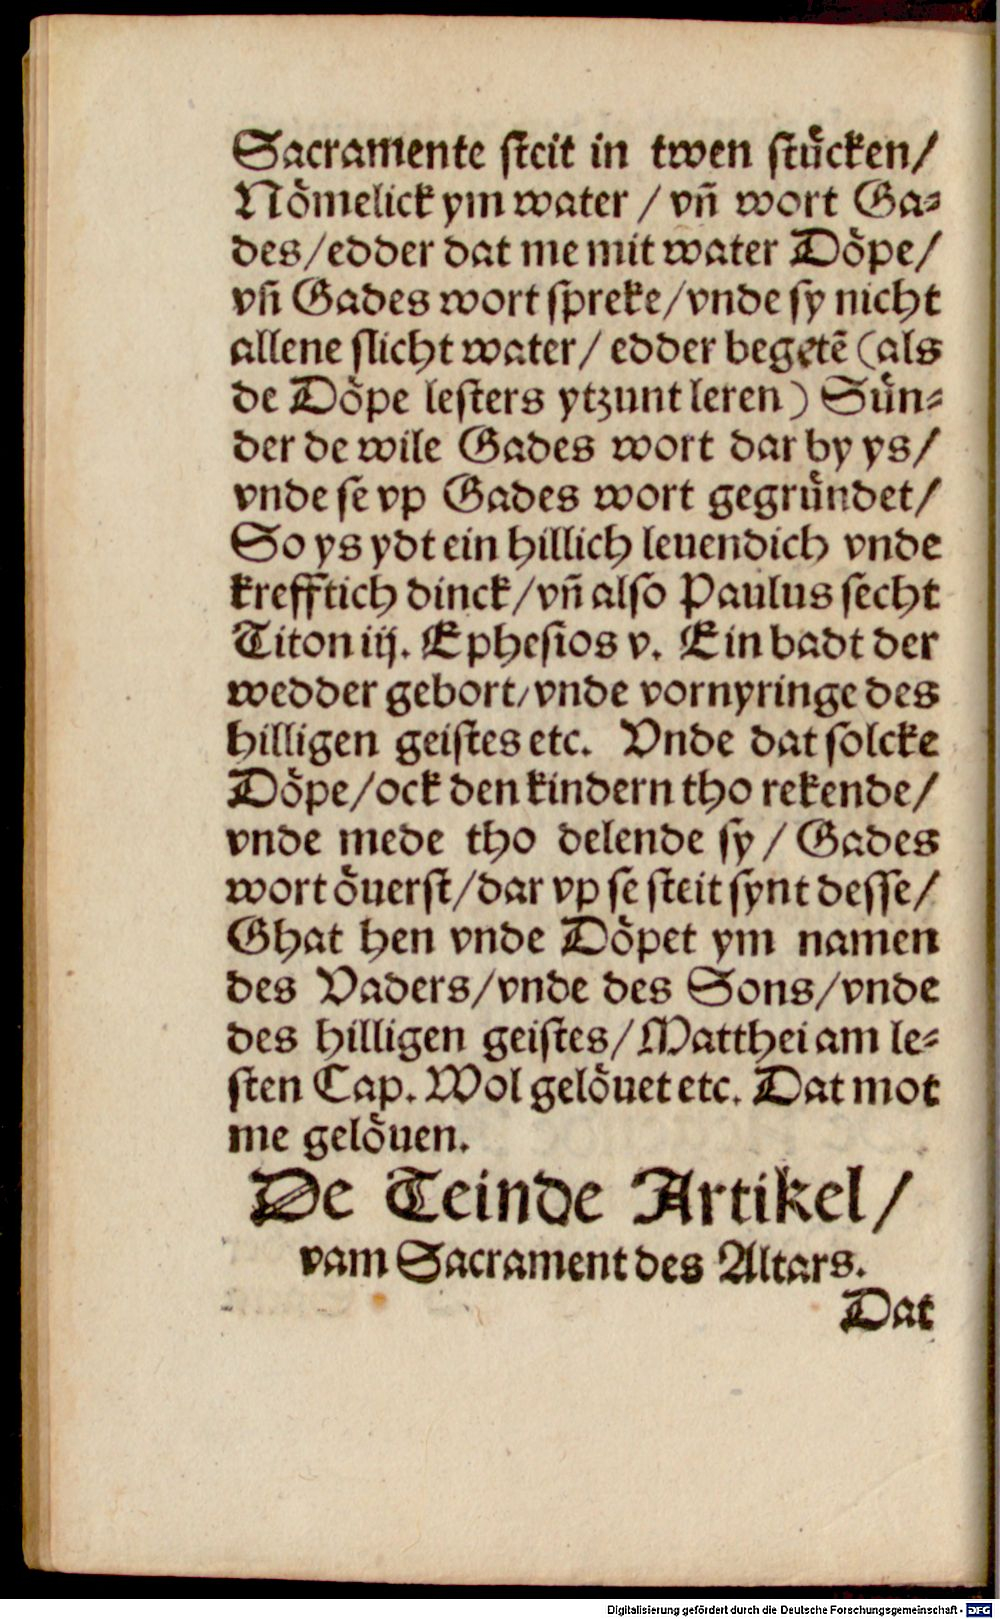 Sacramente steit in twen stuͤcken/
Noͤmelick ym water / vñ wort Ga⸗
des/edder dat me mit water Doͤpe/
vñ Gades wort spreke/vnde sy nicht
allene slicht water/ edder begetẽ (als
de Doͤpe lesters ytzunt leren) Suͤn⸗
der de wile Gades wort dar by ys/
vnde se vp Gades wort gegruͤndet/
So ys ydt ein hillich leuendich vnde
krefftich dinck/vñ also Paulus secht
Titon iij. Ephesios v. Ein badt der
wedder gebort/vnde vornyringe des
hilligen geistes etc. Vnde dat solcke
Doͤpe/ock den kindern tho rekende/
vnde mede tho delende sy / Gades
wort oͤuerst/dar vp se steit synt desse/
Ghat hen vnde Doͤpet ym namen
des Vaders/vnde des Sons/vnde
des hilligen geistes/Matthei am le⸗
sten Cap. Wol geloͤuet etc. Dat mot
me geloͤuen.
De Teinde Artikel/
vam Sacrament des Altars.
Dat
Digitalisierung gefördert durch die Deutsche Forschungsgemeinschaft - DFG